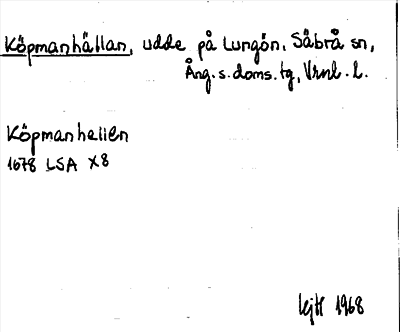 Köpmanhällan, udde på Lungön, Säbrå sn,
Ång. s. doms. tg, Vrnl. l.
Köpmanhellen
1678 LSA X8
1968